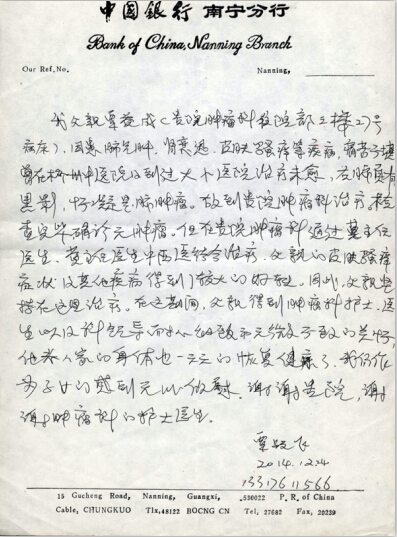 中國銀行 南宁分行
Bank of China, Nanning Branch
Our Ref. No.
Nanning,
我父亲覃 成（贵院肿瘤科住院部三楼27号
病床），因患肺气肿，肾衰退，皮肤瘙痒等疾病，痛苦
曾在 州 医院及到过大小医院治疗未愈，在肺尾有
黑影，怀疑是肺肿瘤。故到贵院肿瘤科治疗，检
查完毕确诊无肿瘤。但在贵院肿瘤科通过 主任
医生，黄 医生中西医结合治疗，父亲的皮肤瘙痒
症状及其他疾病得到了较大的好转。因此，父亲坚
持在这里治疗。在这期间，父亲得到肿瘤科护士，医
生以及科领导 无微不致的关怀，
他老人家的身体也一天天的恢复健康了。我们作
为子女的感到无以 。谢谢贵院，谢
谢肿瘤科的护士医生。
覃
2014.12.4
13317611566
15 Gucheng Road, Nanning, Guangxi, .530022 P. R. of China
Cable, CHUNGKUO Tlx,48122 BOCNG CN Tel, 27682 Fax, 20239